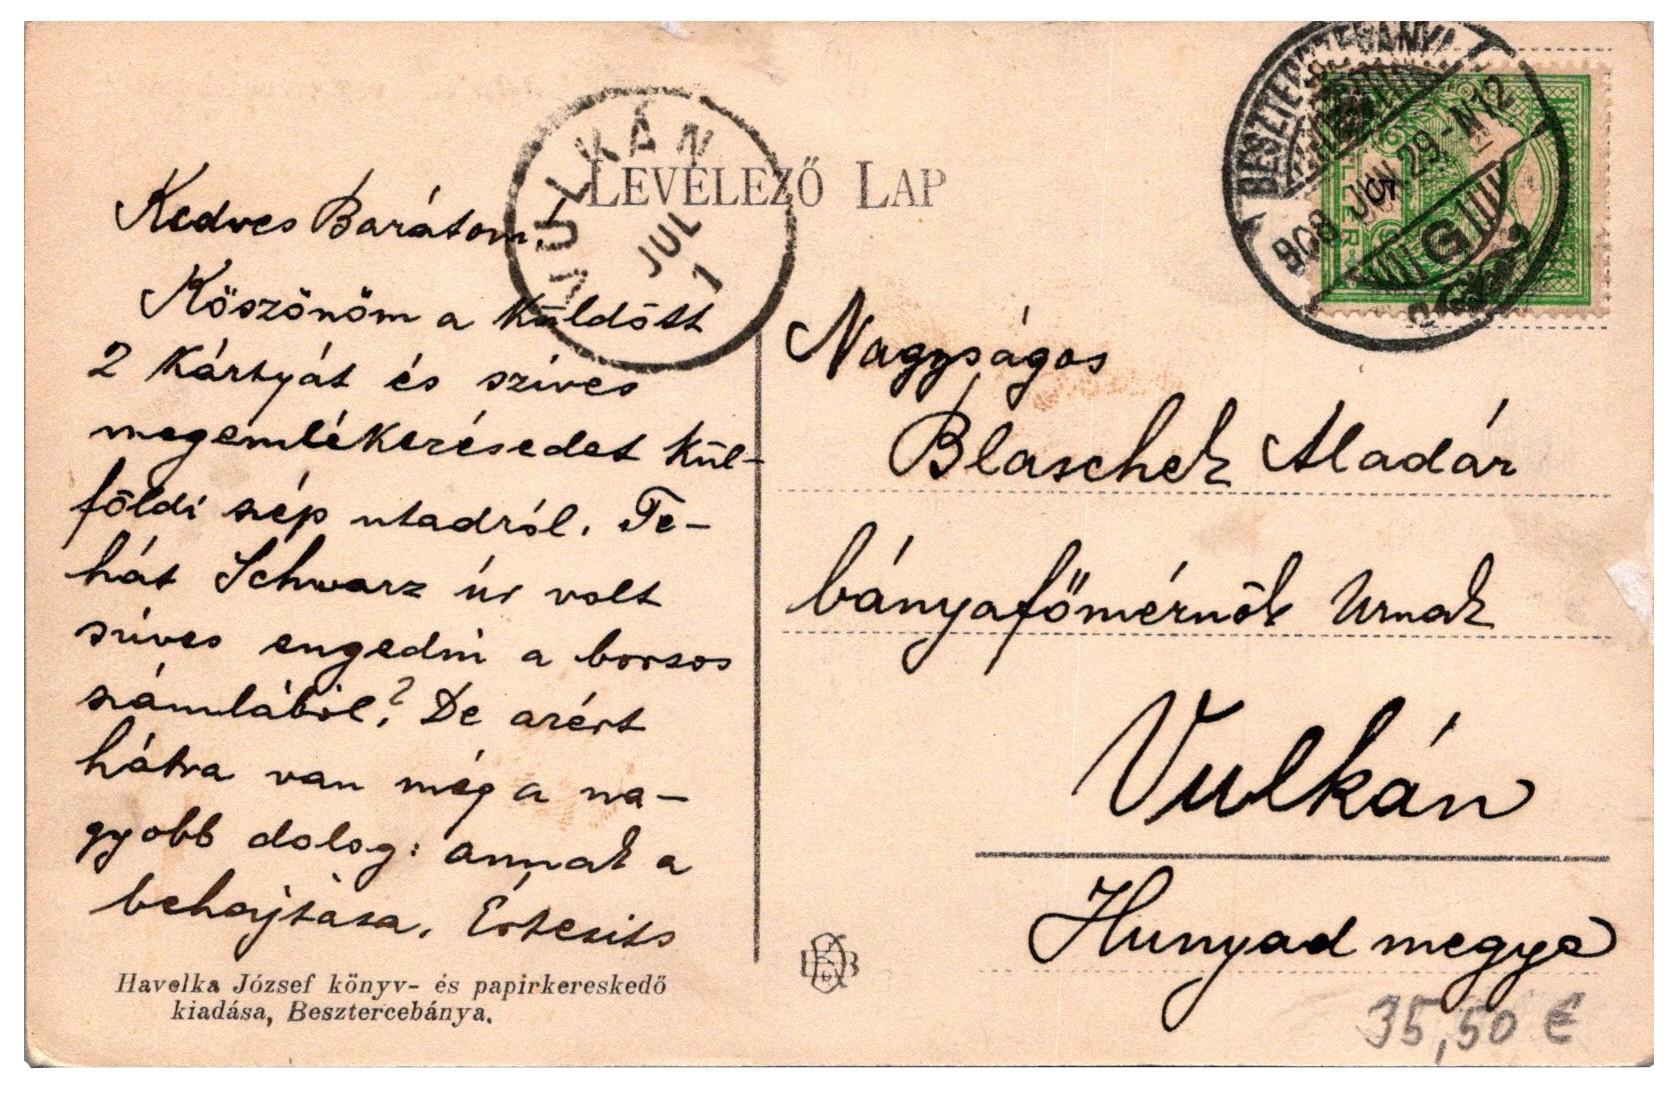 LEVELEZŐ LAP
VULKÁN
JUL
1
BESZTERCZEBÁNYA
908 JUN 29 - N12
G
Kedves Barátom!
Köszönöm a küldött
2 kártyát és szives
megemlékezésedet kül-
földi szép utadról. Te-
hát Schwarz úr volt
szives engedni a borsos
számlából? De azért
hátra van még a na-
gyobb dolog: annak a
behajtása. Értesits
Havelka József könyv- és papirkereskedő
kiadása, Besztercebánya.
Nagyságos
Blaschek Aladár
bányafőmérnök Urnak
Vulkán
Hunyad megye
35,50 €